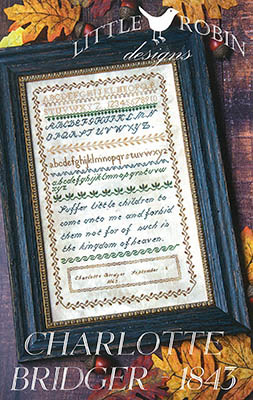 LITTLE ROBIN
designs
abcdefghijklmnopqrstuvwxyz
abcdefghijklmnopqrstuvw
xyz
Suffer little children to
come unto me and forbid
them not for of such is
the kingdom of heaven.
Charlotte Bridger September
1843
CHARLOTTE
BRIDGER - 1843